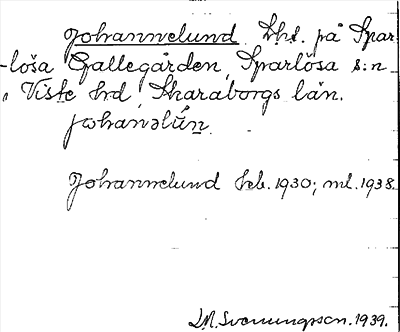 Johannelund Lht. på Spar-
-lösa Gallegården, Sparlösa s:n
Viste hd, Skaraborgs län.
johanəlún
Johannelund Jeb. 1930; ml. 1938.
L.M. Svenungsson. 1939.